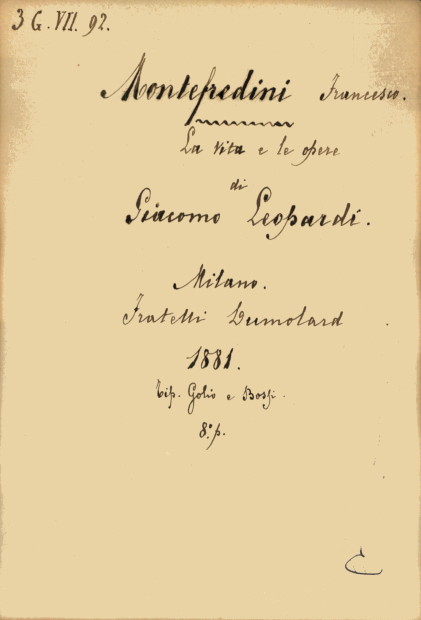 3 G. VII. 92.
Montefredini Francesco.
La vita e le opere
di
Giacomo Leopardi.
Milano.
Fratelli Dumolard
1881.
Tip. Golio e Bossi.
8.° p.
C